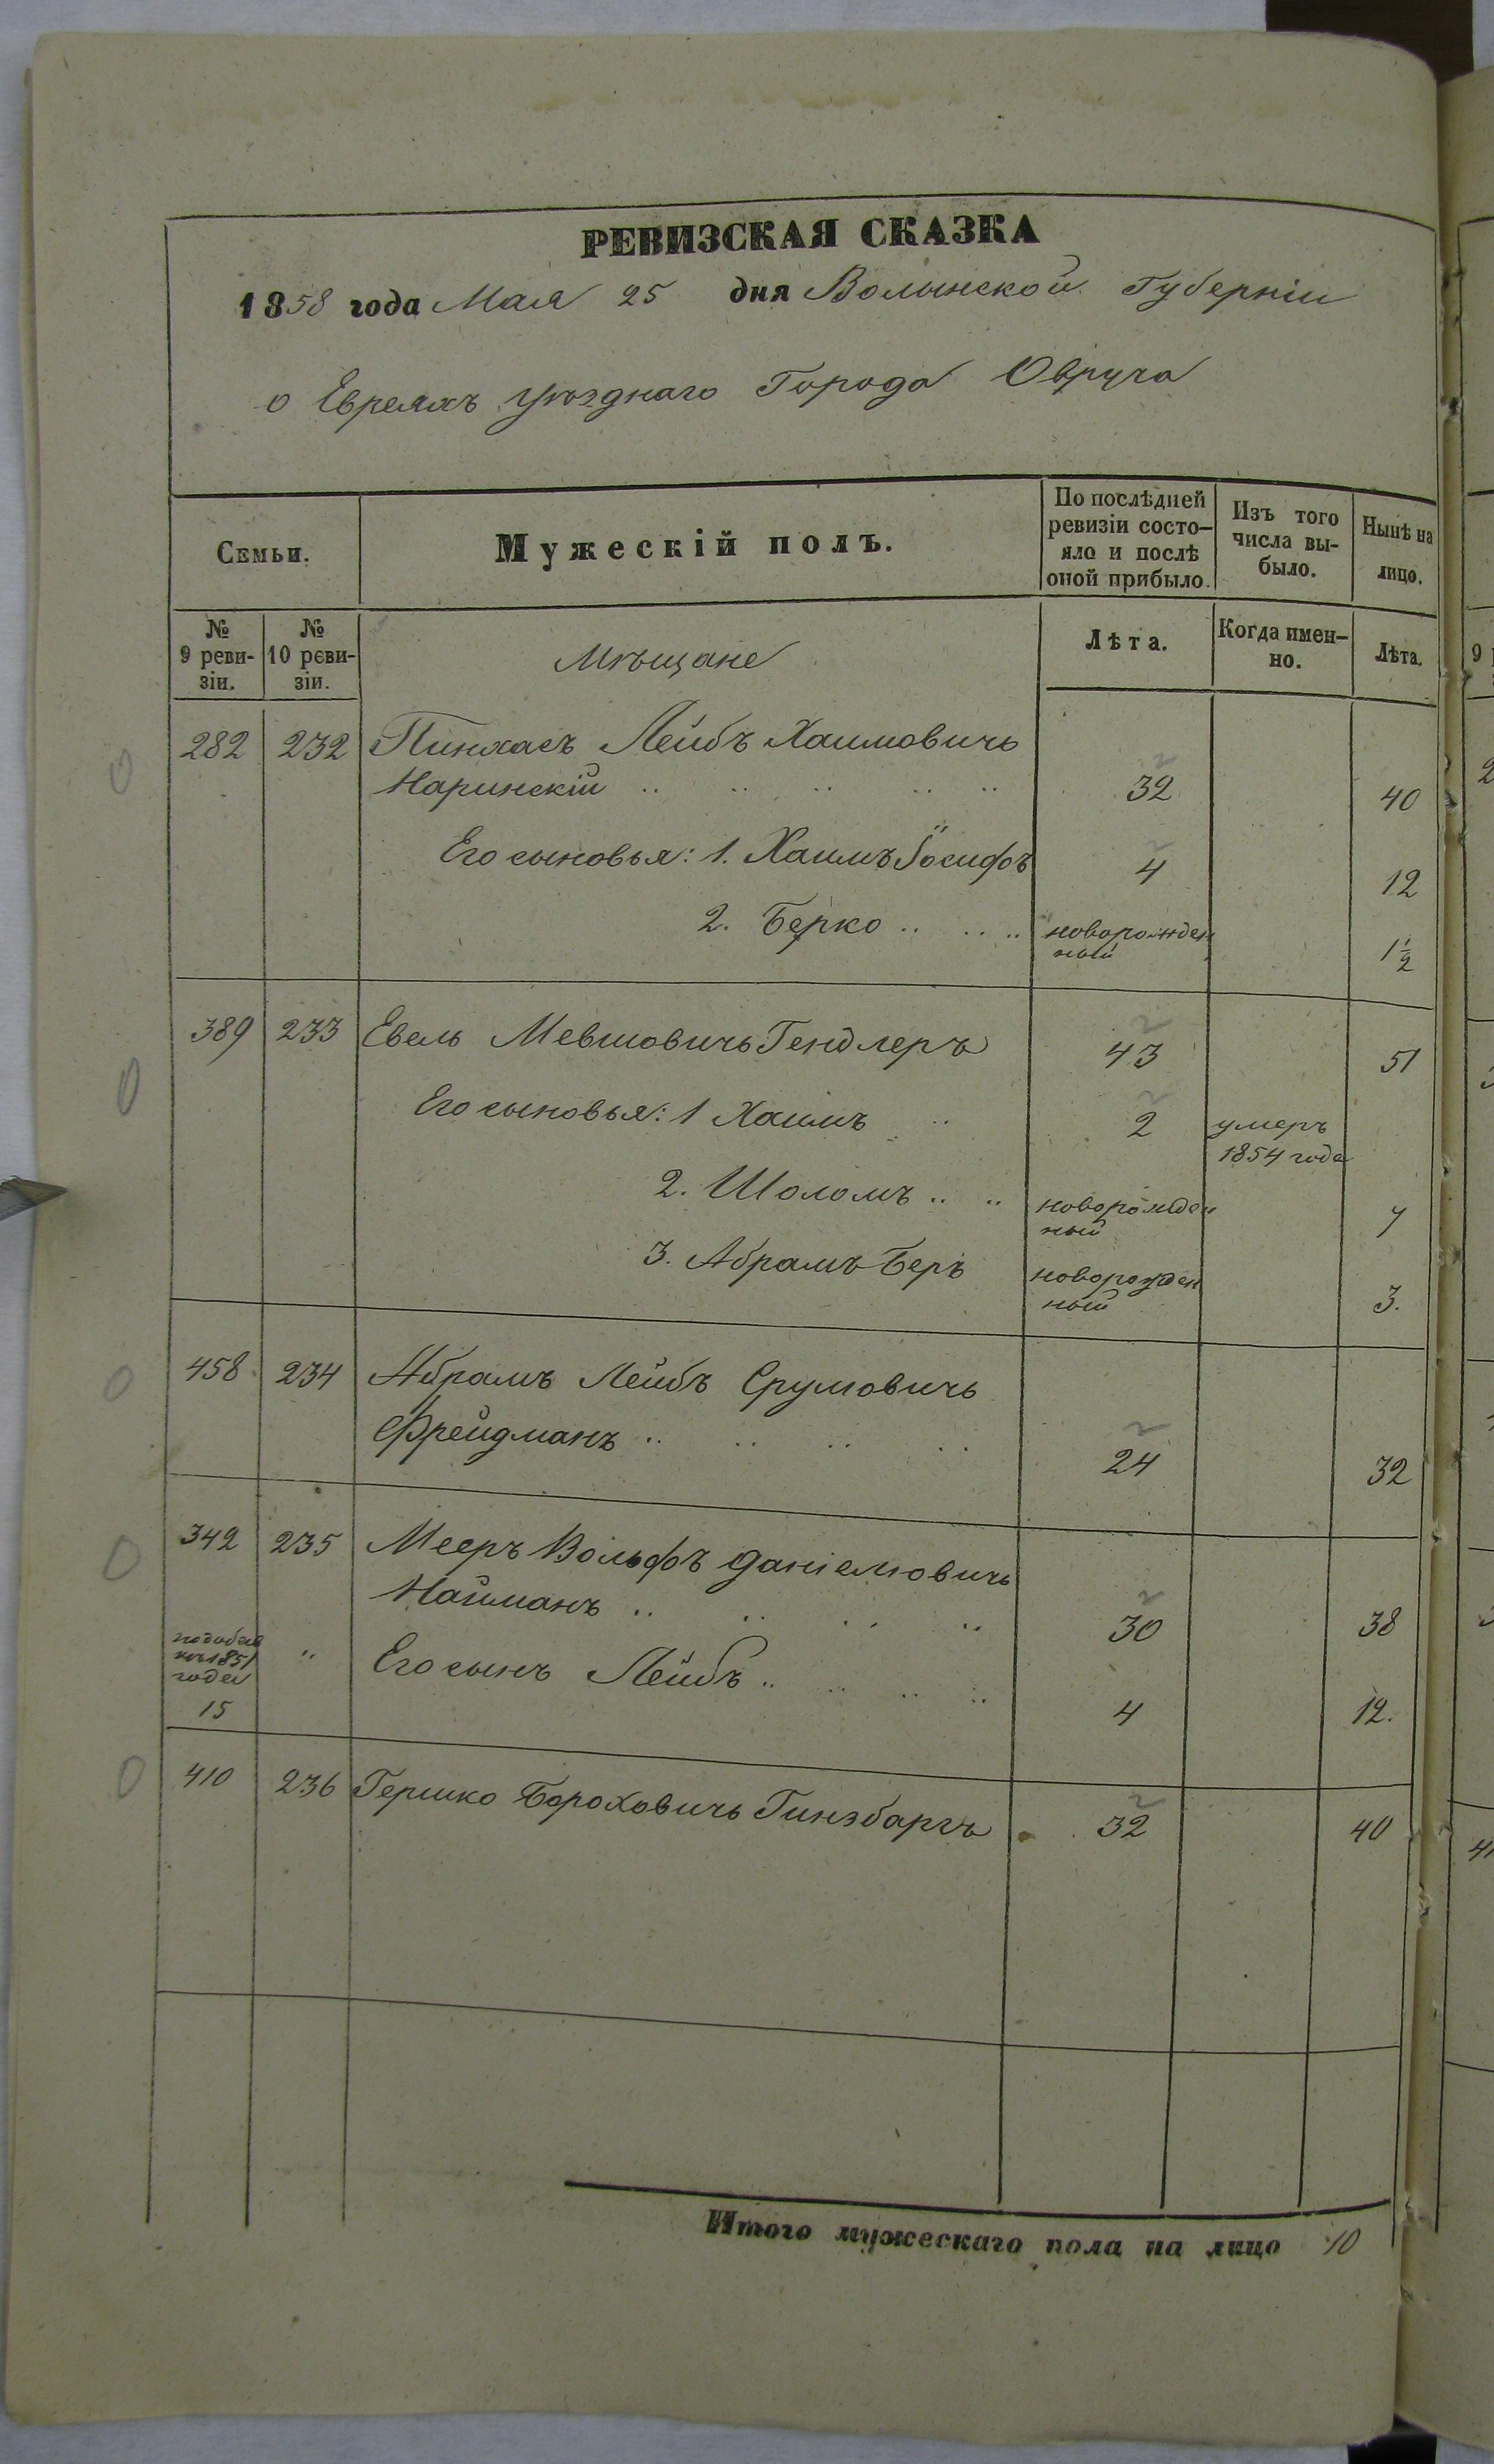 РЕВИЗСКАЯ СКАЗКА
1858 года Мая 25 дня Волынской Губерніи
о Евреяхъ уѣзднаго Города Овруча
Семьи.
Мужескій полъ.
По послѣдней ревизіи состо-
яло и послѣ
оной прибыло.
Изъ того
числа вы-
было.
Нынѣ на
лицо.
№
9 реви-
зіи.
№
10 реви-
зіи.
Мѣщане
Лѣта.
Когда имен-
но.
Лѣта.
282 232 Пинхасъ Лейбъ Хаимовичъ
Наринскій .. .. .. .. .. 32 40
Его сыновья: 1. Хаимъ Іосифъ 4 12
2. Берко .. .. .. новорожден
ный 1½
389 233 Евель Мевшовичъ Гендлеръ 43 51
Его сыновья: 1 Хаимъ .. 2 умеръ
1854 года
2. Шоломъ .. .. новорожден
ный 7
3. Абрамъ Беръ новорожден
ный 3.
458 234 Абрамъ Лейбъ Срумовичъ
Фрейдманъ .. .. .. .. 24 32
342 235 Мееръ Вольфъ Даніелювичъ
Найманъ .. .. .. .. 30 38
1851
года
15 " Его сынъ Лейбъ .. .. .. .. 4 12.
410 236 Гершко Бороховичъ Гинзбаргъ 32 40
Итого мужескаго пола на лицо 10